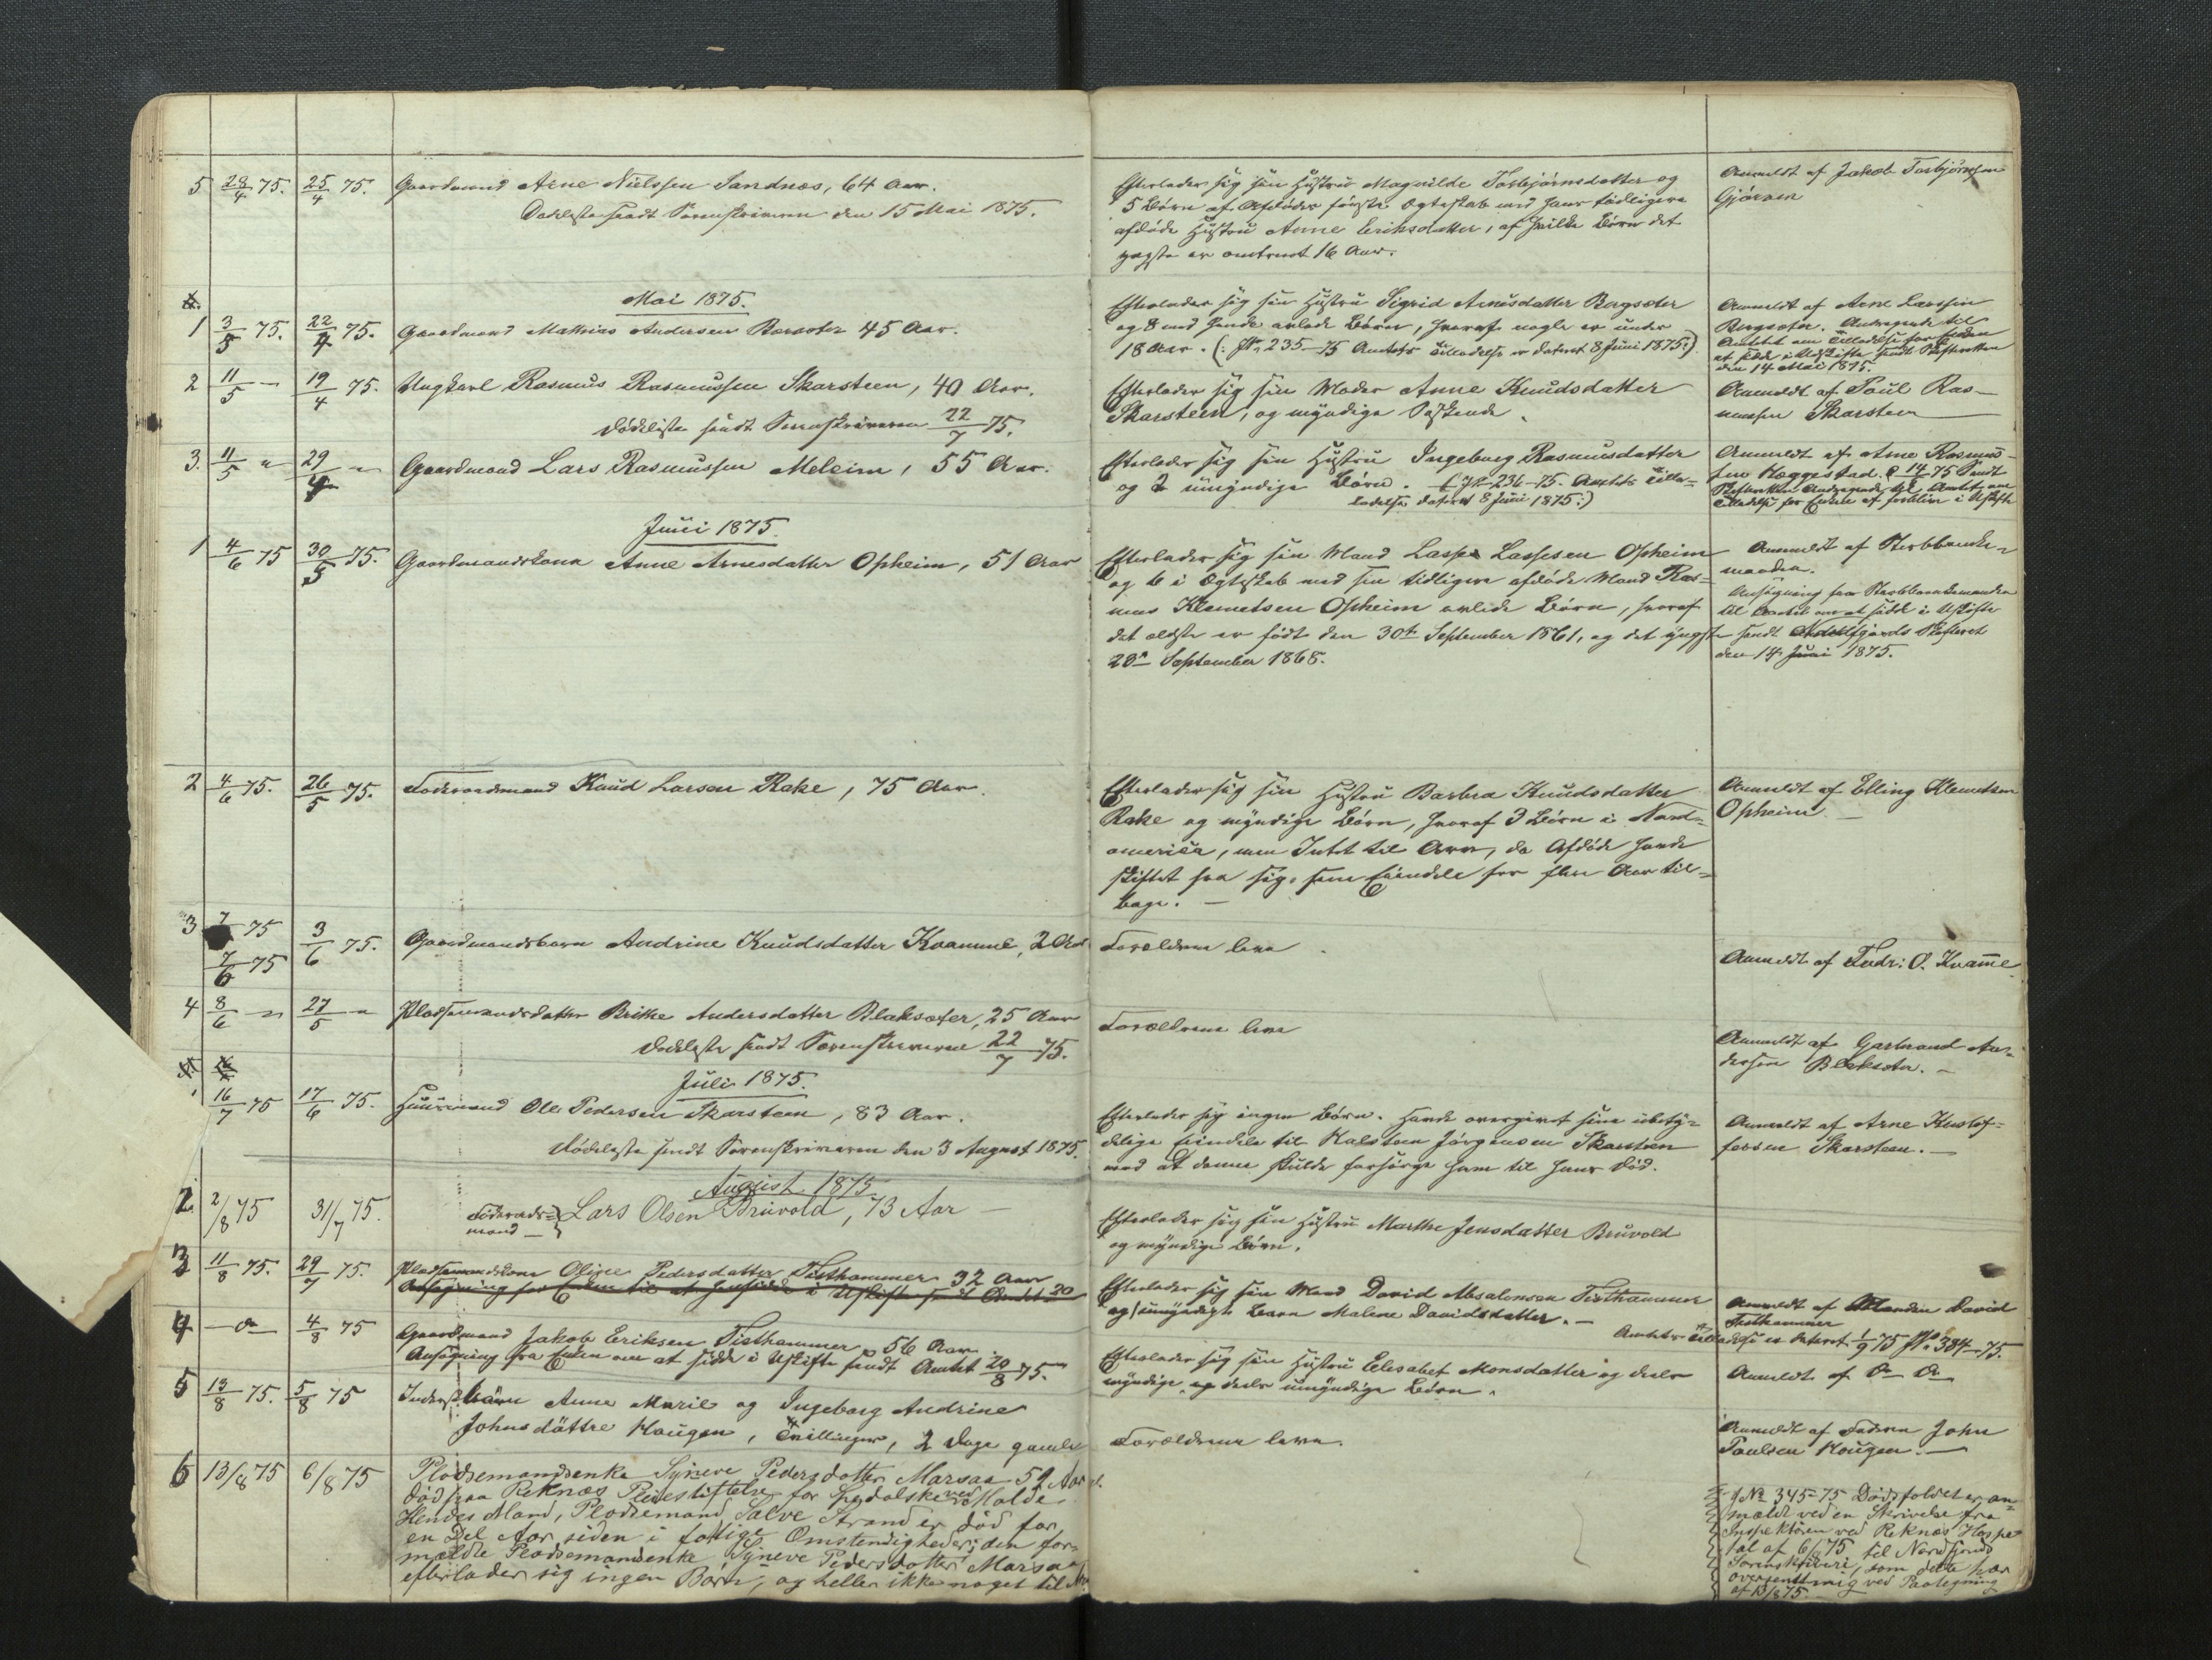 5 28/4 75. 25/4 75. Gaardmand Arne Nielssen Sandnæs, 64 Aar.
Dødsliste sendt Sorenskriveren den 15 Mai 1875.
Efterlader sig sin Hustru Magnilde Torbjørnsdatter og
5 Børn af Afdødes første Ægteskab med hans tidligere
afdøde Hustru Anne Eriksdatter, af hvilke Børn det
yngste er omtrent 16 Aar.
Anmeldt af Jakob Torbjørnsen
Gjørven
Mai 1875.
1 3/5 75. 22/4 75. Gaardmand Mathias Andersen Bagsæter 45 Aar.
Efterlader sig sin Hustru Sigrid Arnesdatter Bagsæter
og 8 med hende avlede Børn, hvoraf nogle er under
18 Aar. (: No 235-75 Amtets Tilladelse er dateret 8 Juni 1875:)
Anmeldt af Arne Larssen
Bergsæter. Andragende til
Amtet om Tilladelse for Enken
at sidde i Uskifte sendt Skifteretten
den 14 Mai 1875.
2 11/5 — 19/4 75. Ungkarl Rasmus Rasmussen Skarsteen, 40 Aar.
Dødsliste sendt Sorenskriveren 22/7 75.
Efterlader sig sin Moder Anne Knudsdatter
Skarsteen, og myndige Søskende.
Anmeldt af Poul Ras-
mussen Skarsteen
3. 11/5 " 29/4 " Gaardmand Lars Rasmussen Meleim, 55 Aar.
Efterlader sig sin Hustru Ingeborg Rasmusdatter
og 2 umyndige Børn. (: No 236-75. Amtets Tilla-
ladelse dateret 8 Juni 1875:)
Anmeldt af Arne Rasmus-
sen Heggestad. 14/5 75 Sendt
Skifteretten Andragende til Amtet om
Tilladelse for Enken at forblive i Uskifte
Juni 1875.
1 4/6 75 30/5 75. Gaardmandskona Anne Arnesdatter Opheim, 51 Aar
Efterlader sig sin Mand Lasse Lassesen Opheim
og 6 i Ægteskab med sin tidligere afdøde Mand Ras-
mus Klemetsen Opheim avlede Børn, hvoraf
det ældste er født den 30te September 1861, og det yngste
20de September 1868.
Anmeldt af Sterbboenke-
manden.
Ansøgning fra Sterbboenkemanden
til Amtet om at sidde i Uskifte
sendt Nordfjords Skifteret
den 14 Juni 1875.
2 4/6 75. 26/5 75. Føderaadsmand Knud Larsen Rake, 75 Aar.
Efterlader sig sin Hustru Barbra Knudsdatter
Rake og myndige Børn, hvoraf 3 Børn i Nord-
amerika, men Intet til Arv, da Afdøde havde
skiftet fra sig sine Eiendele for flere Aar til-
bage. —
Anmeldt af Elling Klemetsen
Opheim. —
3 7 75
7/6 75 3/6 75. Gaardmandsbarn Andrine Knudsdatter Kvamme, 2 Aar
Forældrene leve.
Anmeldt af Fredr: O. Kvamme
4 8/6 — 27/5 " Pladsemandsdatter Brithe Andersdatter Blaksæter, 25 Aar
Dødsliste sendt Sorenskriveren 22/7 75.
Forældrene leve
Anmeldt af Gerhard An-
dersen Blaksæter. —
Juli 1875.
16/7 75 17/6 75. Huusmand Ole Pedersen Skarsteen, 83 Aar.
Dødsliste sendt Sorenskriveren den 3 August 1875.
Efterlader sig ingen Børn. Havde overgivet sine ubety-
delige Eiendele til Kalsteen Jørgensen Skarsteen
mod at denne skulde forsørge ham til hans Død.
Anmeldt af Arne Kristof-
fersen Skarsteen. —
August 1875.
2 2/8 75 31/7 75. Føderaads-
mand — Lars Olsen Bruvold, 73 Aar —
Efterlader sig sin Hustru Marthe Jensdatter Bruvold
og myndige Børn.
3 11/8 75. 29/7 75. Pladsemandskone Oline Pedersdatter Tisthammer 32 Aar
Ansøgning fra Enken til at hensidde i Uskifte s. til Amtet 20
Efterlader sig sin Mand David Absalonsen Tisthammer
og 1 umyndigt Barn Malene Davidsdatter. —
Anmeldt af Manden David
Tisthammer
4 — " — 4/8 75 Gaardmand Jakob Eriksen Tisthammer 56 Aar
Ansøgning fra Enken om at sidde i Uskifte sendt Amtet 20/8 75.
Amtets Tilladelse er dateret 1/9 75 No 384-75.
Efterlader sig sin Hustru Elisabet Monsdatter og deels
myndige og deels umyndige Børn.
Anmeldt af Do Do
5 13/8 75. 5/8 75 Inderstbørn Anne Marie og Ingeborg Andrine
Johnsdøttre Haugen, Tvillinger, 2 Dage gamle
Forældrene leve.
Anmeldt af Faderen John
Paulsen Haugen. —
6 13/8 75 6/8 75 Pladsemandsenke Synneve Pedersdotter Marsaa 54 Aar gl.
død paa Reknæs Pleiestiftelse for Spedalske ved Molde.
Hendes Mand, Pladsemand Salve Strand er død for
en Del Aar siden i fattige Omstendigheder; den for-
mældte Pladsemandsenke Synneve Pedersdotter Marsaa
efterlader sig ingen Børn, og heller ikke noget til Arv
J No 345-75 Dødsfaldet er an-
mældt ved en Skrivelse fra
Inspektøren ved Reknæs Hospi-
tal af 6/8 75 til Nordfjords
Sorenskriveri, som dette har
oversendt mig ved Paategning
af 13/8 75.